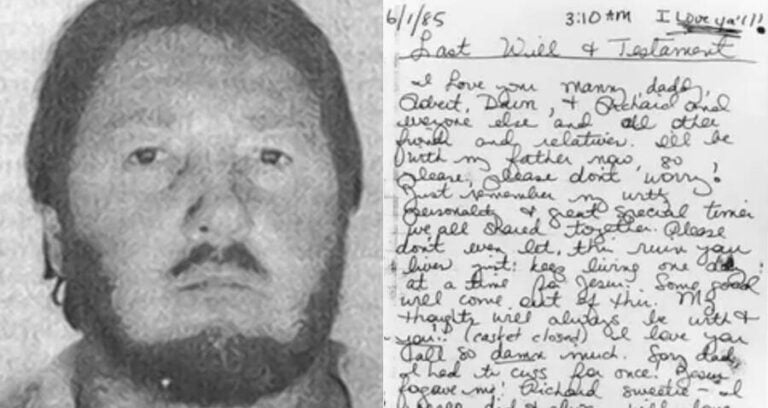 6/1/85 3:10 AM I Love ya'll!
Last Will & Testament
I love you mama, daddy,
Robert, Dawn, & Richard and
everyone else and all other
friends and relatives. I'll be
with my father now, so
please, please don't worry!
Just remember my witty
personality & great special times
we all shared together. Please
don't ever let this ruin your
lives just keep living one day
at a time for Jesus. Some good
will come out of this. My
thoughts will always be with &
you!. (casket closed) I love you
all so damn much. Sorry dad,
I had to cuss for once! Jesus
forgave me! Richard sweetie - I